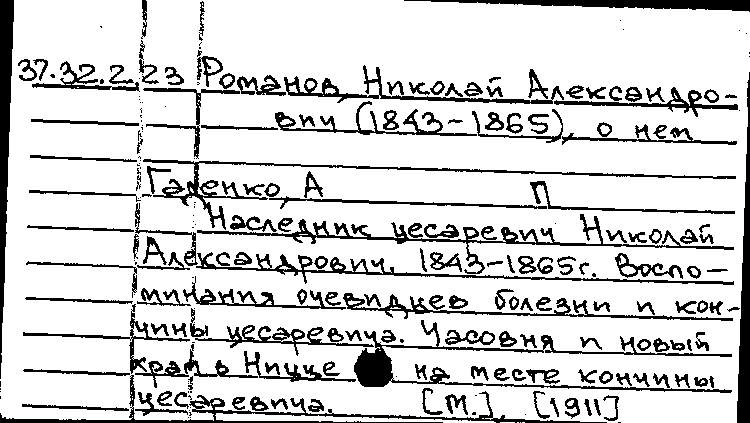 37.32.2.23 Романов, Николай Александро-
вич (1843-1865), о нем
Галенко, А П
Наследник цесаревич Николай
Александрович. 1843-1865г. Воспо-
минания очевидцев болезни и кон-
чины цесаревича. Часовня и новый
храм в Ницце на месте кончины
цесаревича. [М.], [1911]